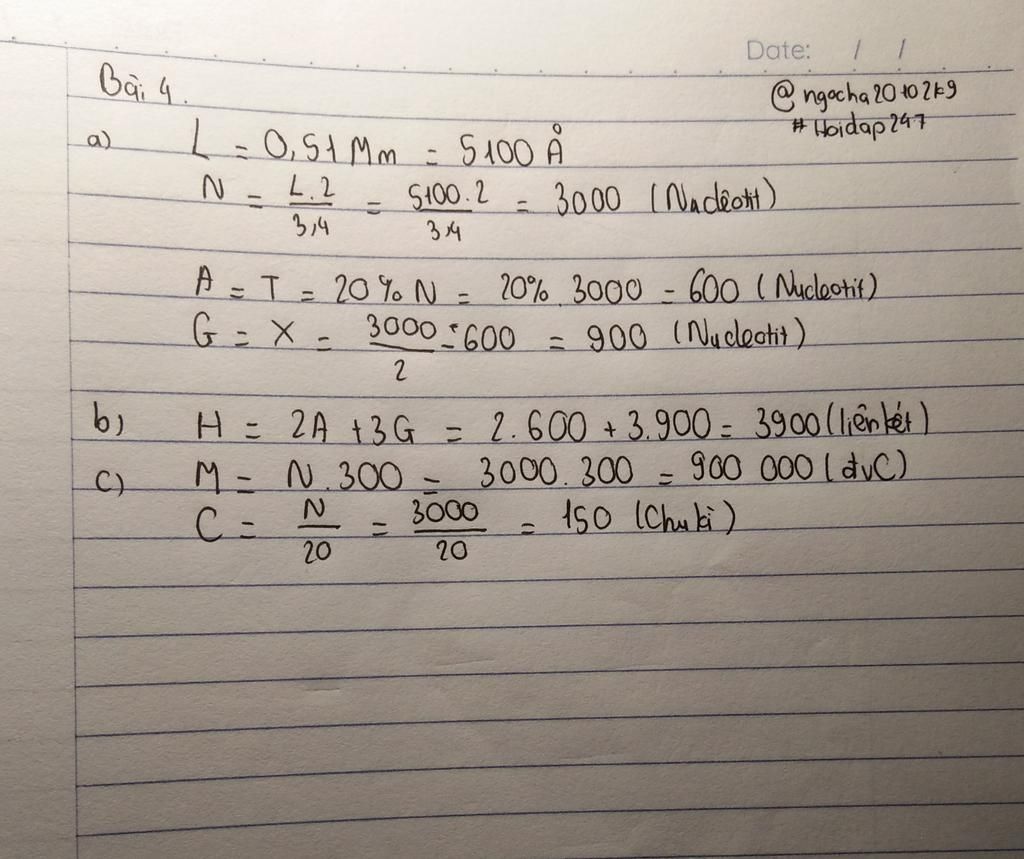 Date: / /
@ngocha20102k9
#Hoidap247
Bài 4.
a) L = 0,51 Mm = 5100 Å
N = L.2/3,4 = 5100.2/3,4 = 3000 (Nuclêotit)
A = T = 20% N = 20%.3000 = 600 (Nucleotit)
G = X = 3000/2 - 600 = 900 (Nucleotit)
b) H = 2A + 3G = 2.600 + 3.900 = 3900 (liên kết)
c) M = N.300 = 3000.300 = 900 000 (đvC)
C = N/20 = 3000/20 = 150 (Chu kì)